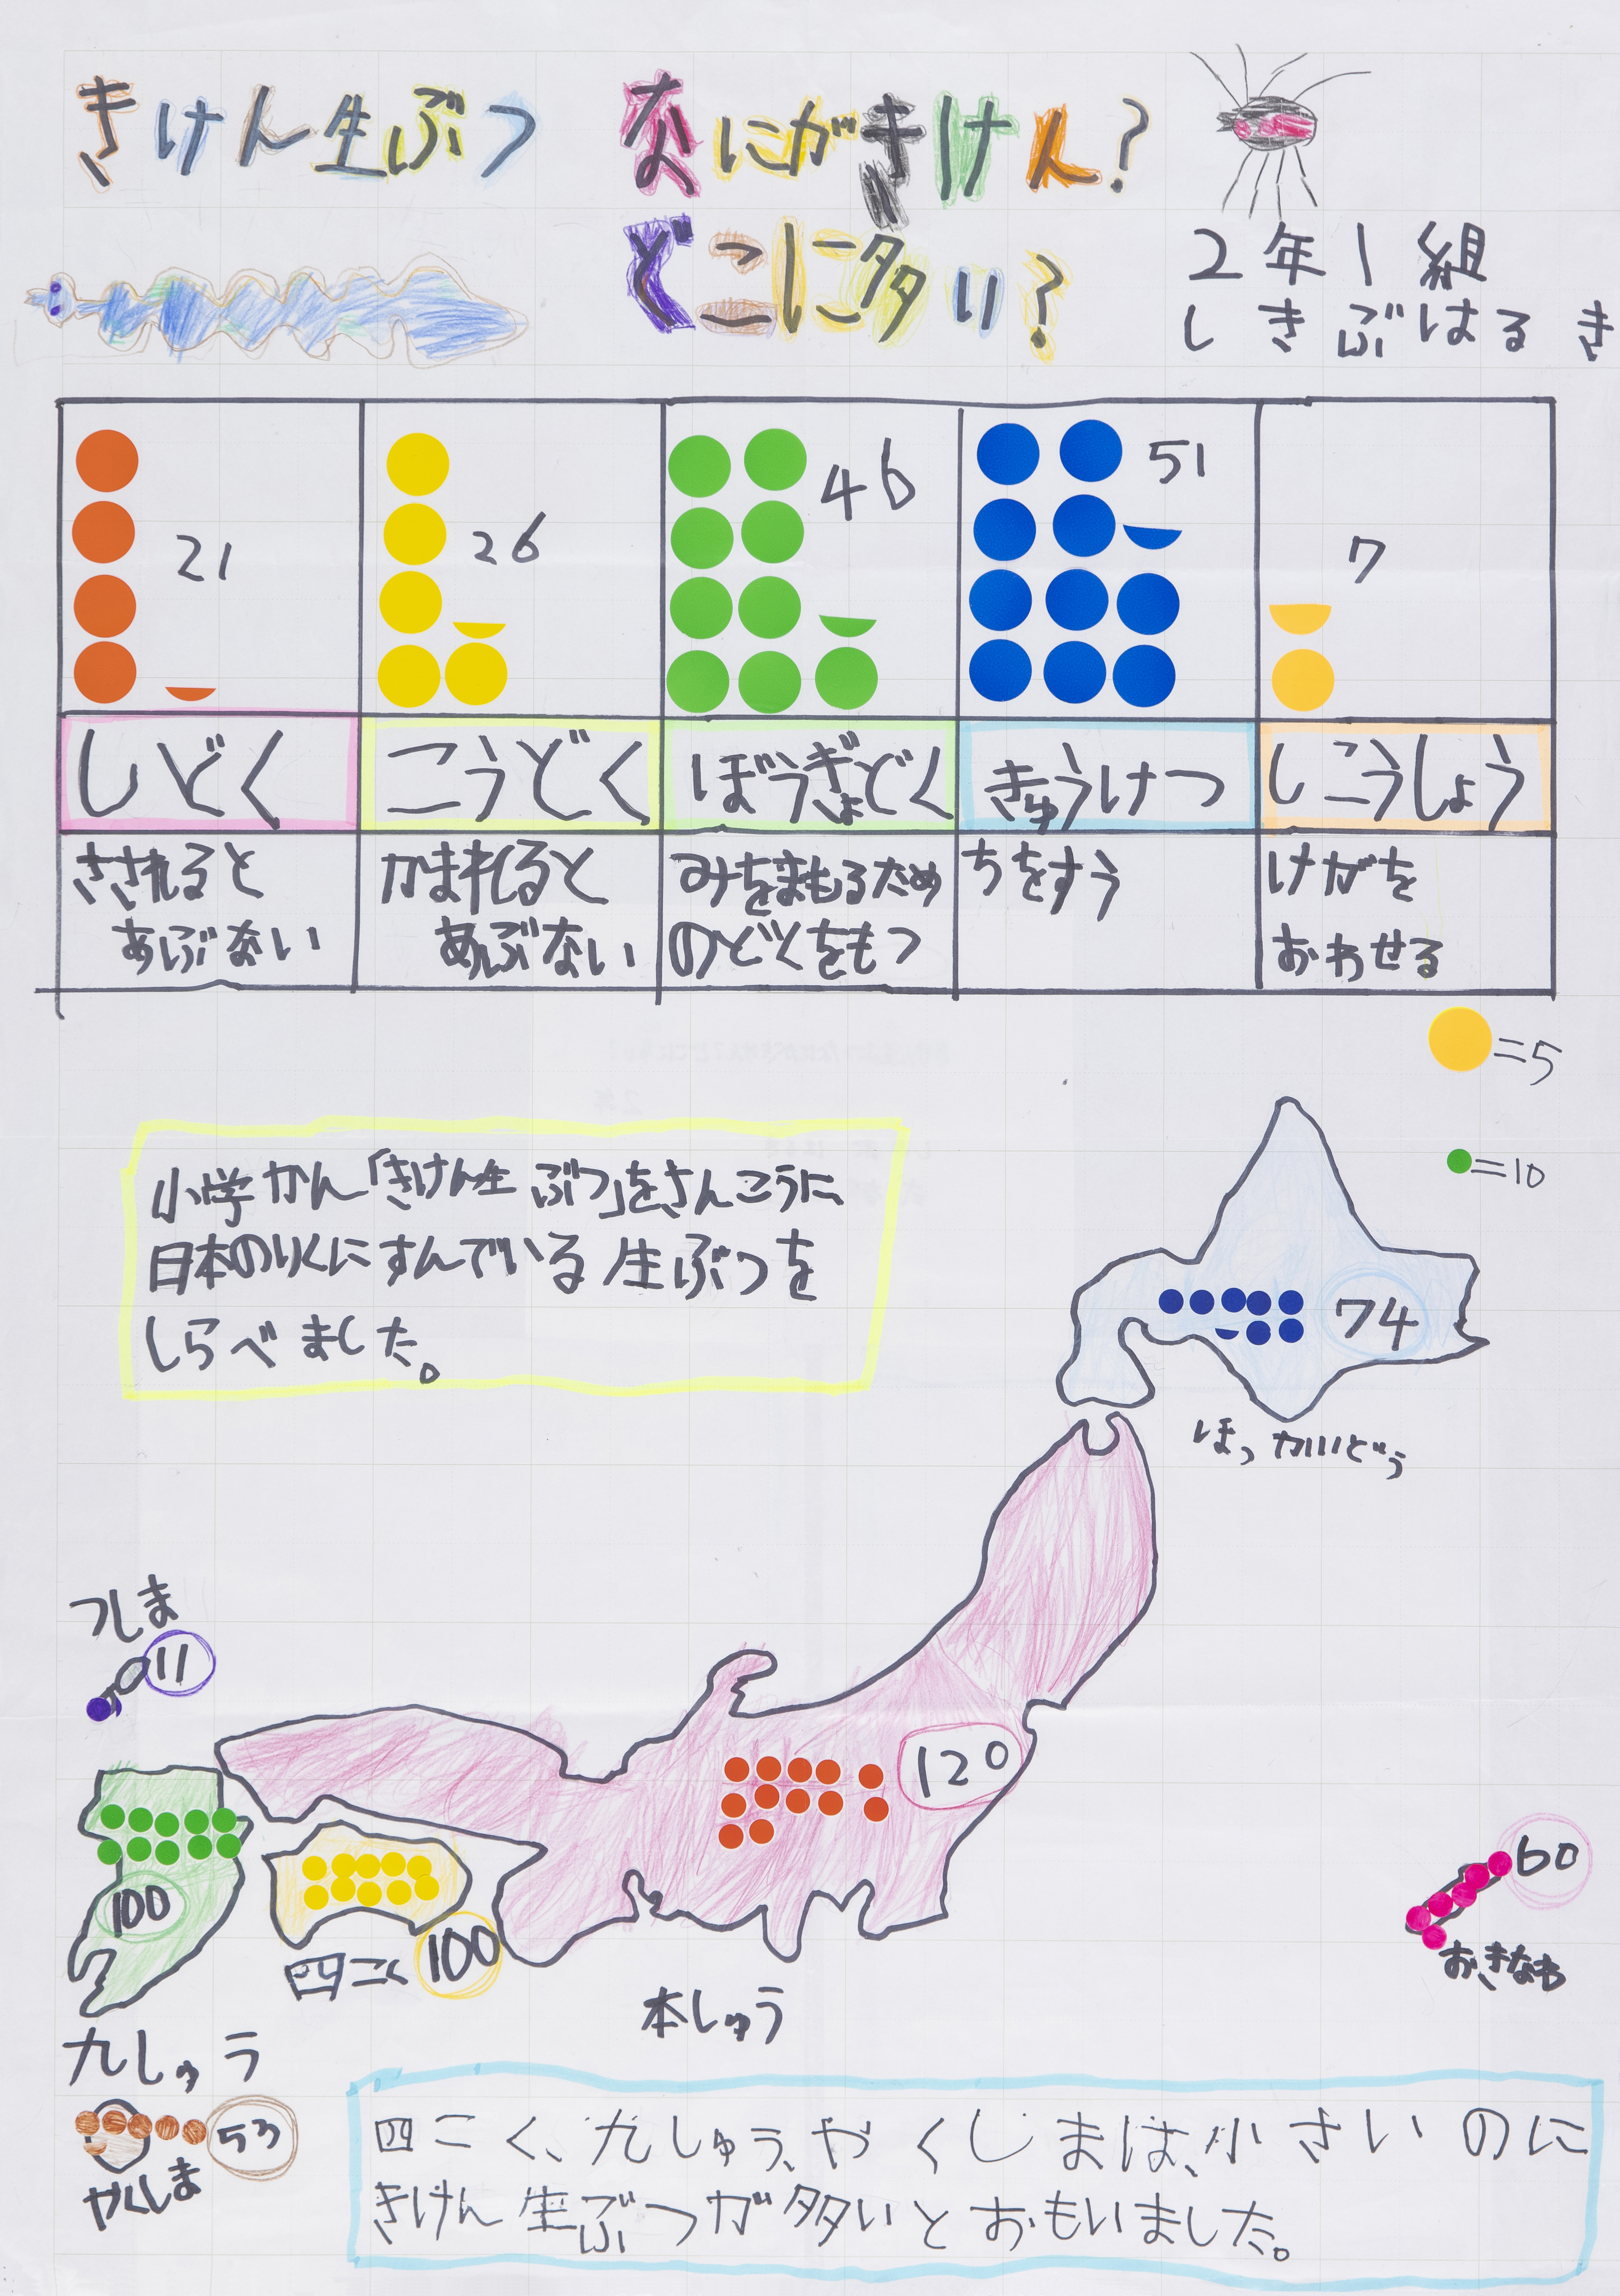 きけん生ぶつ なにがきけん?
どこに多い?
2年1組
しきぶはるき
21
26
46
51
7
しどく
こうどく
ぼうぎょどく
きゅうけつ
しこうしょう
さされると
あぶない
かまれると
あぶない
みをまもるため
のどくをもつ
ちをすう
けがを
おわせる
=5
=10
小学かん「きけん生ぶつ」をさんこうに、
日本のりくにすんでいる生ぶつを
しらべました。
74
ほっかいどう
つしま
11
120
100
100
四こく
本しゅう
九しゅう
60
おきなわ
53
やくしま
四こく、九しゅう、やくしまは、小さいのに
きけん生ぶつが多いとおもいました。